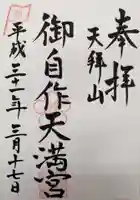 奉拝
天拝山
御自作天満宮
平成三十一年三月十七日